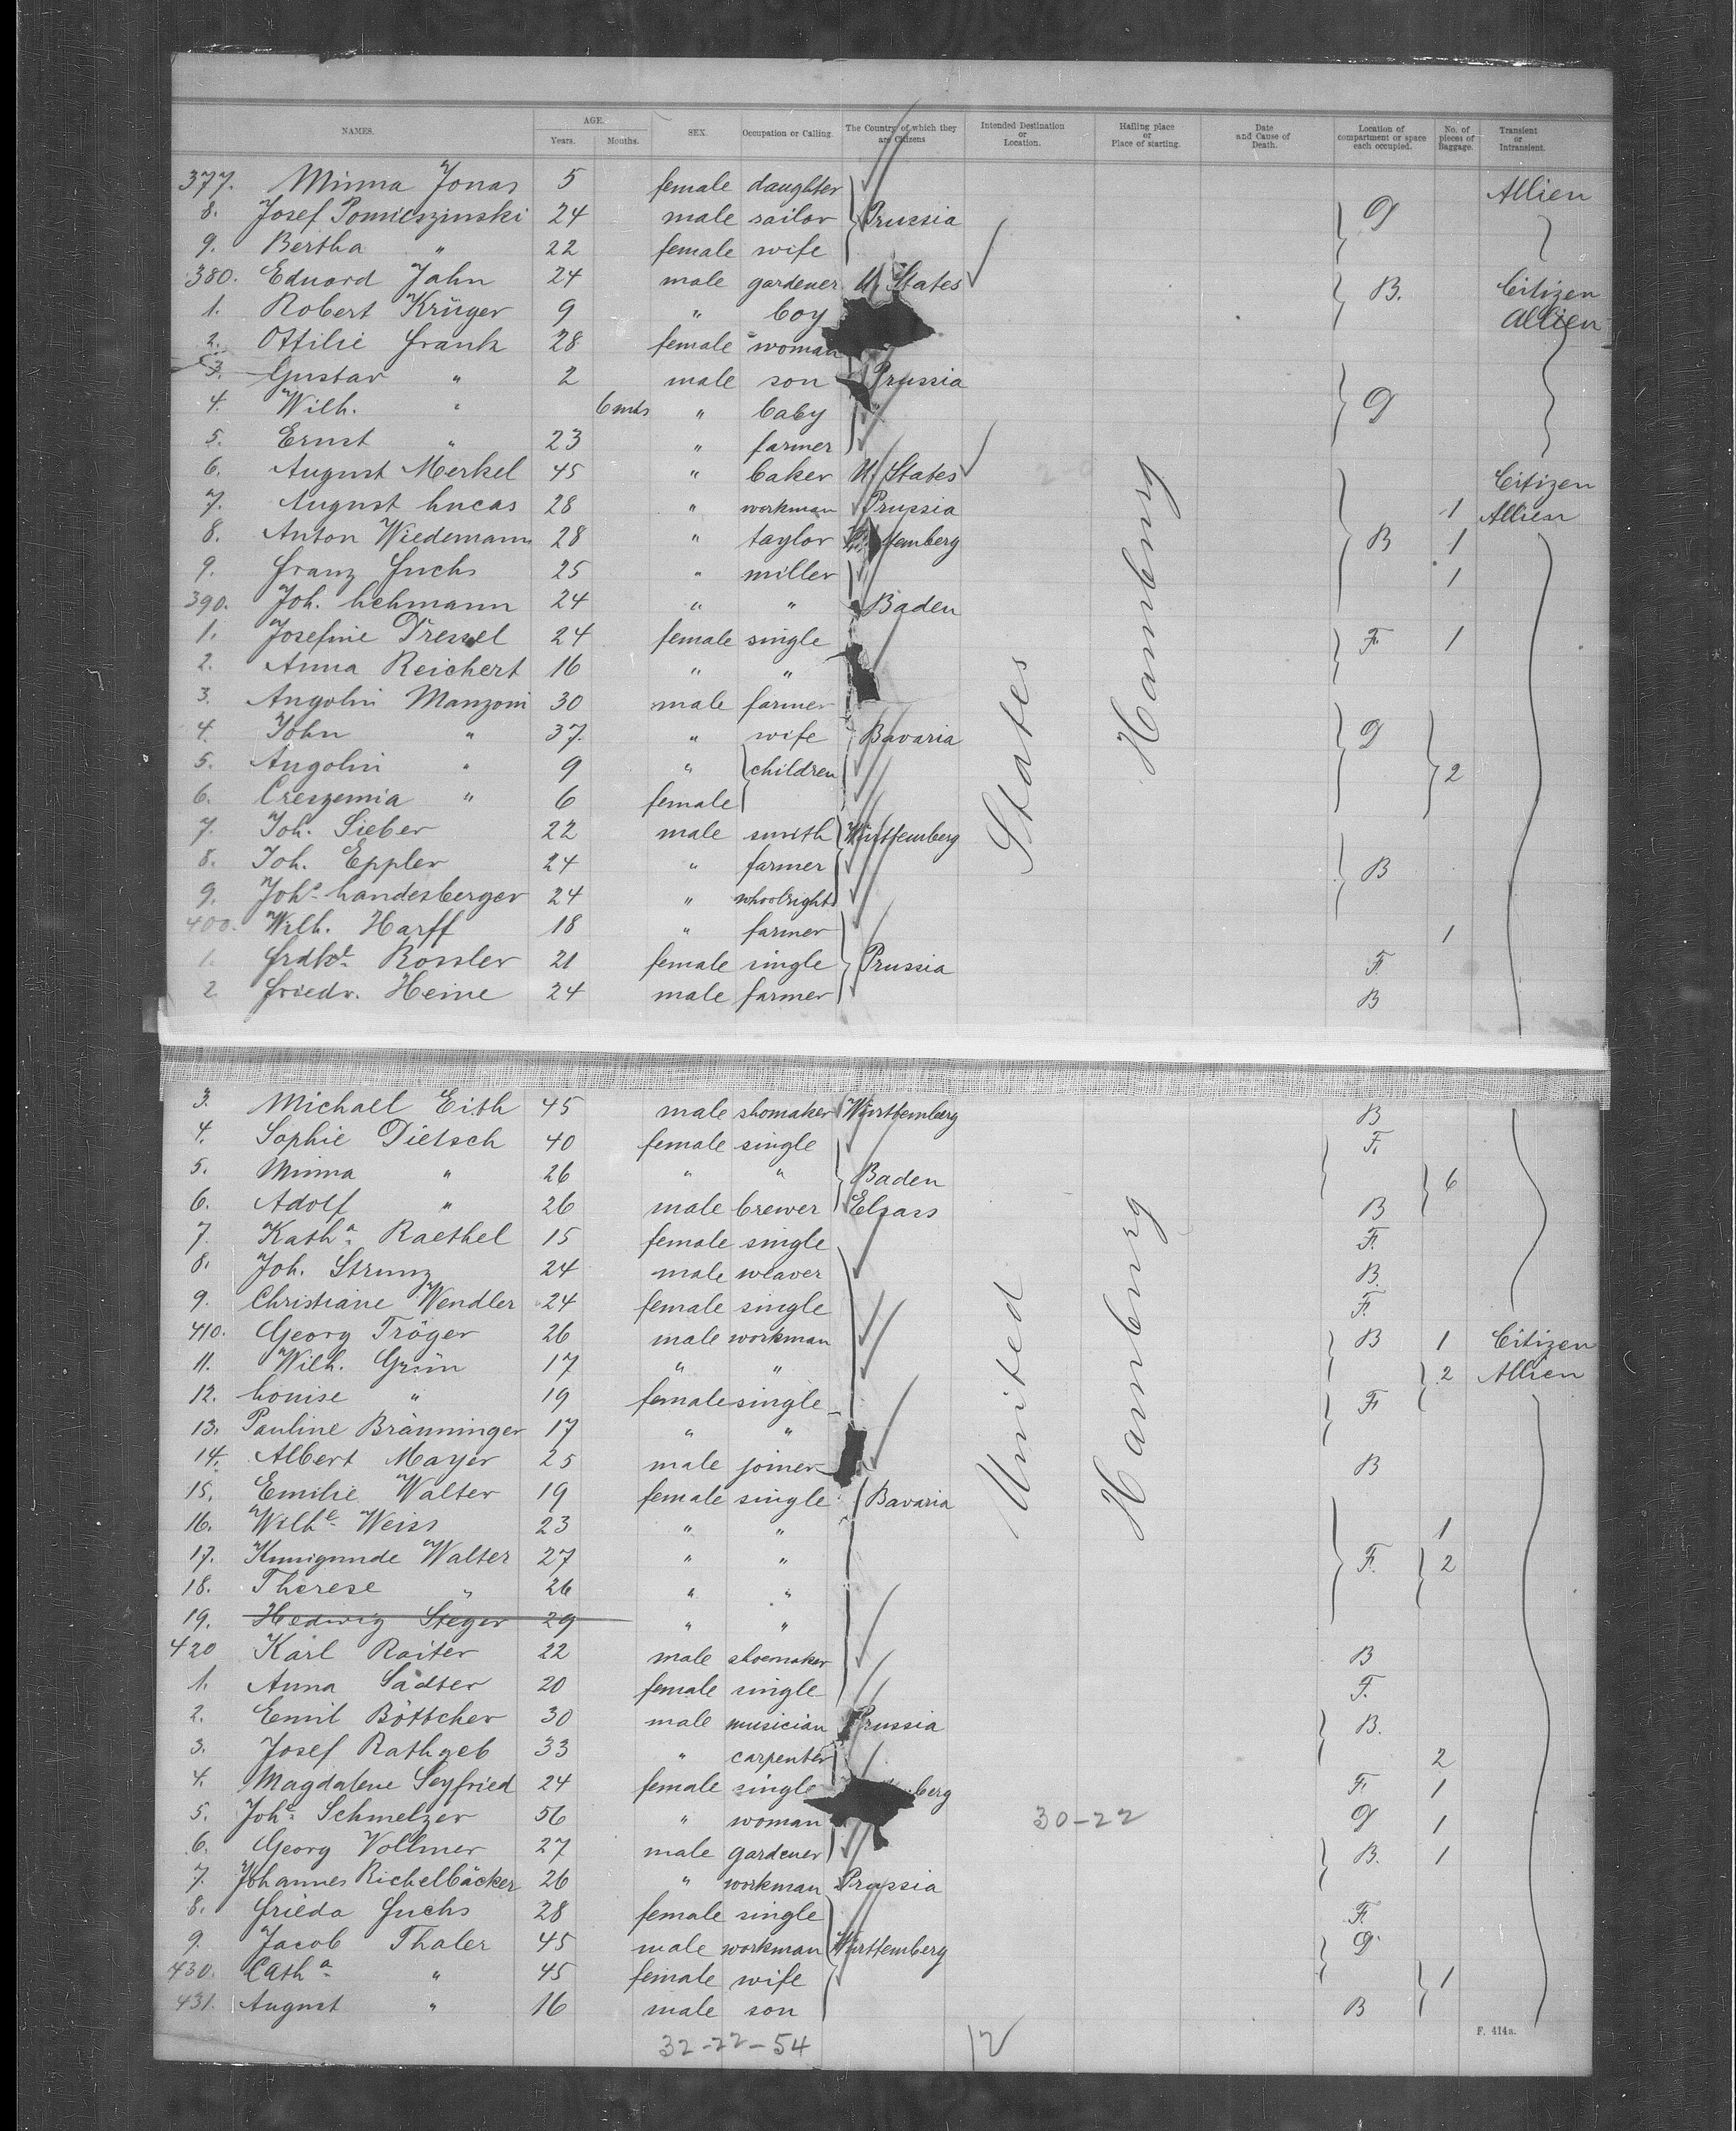 NAMES. AGE. Years. Months. SEX. Occupation or Calling. The Country of which they are Citizens Intended Destination or Location. Hailing place or Place of starting. Date and Cause of Death. Location of compartment or space each occupied. No. of pieces of Baggage. Transient or Intransient.
377. Minna Jonas 5 female daughter Allien
8. Josef Pomieszinski 24 male sailor Prussia O
9. Bertha " 22 female wife
380. Eduard Jahn 24 male gardener U. States B. Citizen
1. Robert Krüger 9 " boy Allien
2. Ottilie Frank 28 female woman
3. Gustav " 2 male son Prussia
4. Wilh. " 6 mths " baby " O
5. Ernst " 23 " farmer
6. August Merkel 45 " baker U. States Citizen
7. August Lucas 28 " workman Prussia 1 Allien
8. Anton Wiedemann 28 " taylor temberg B 1
9. Franz Fuchs 25 " miller 1
390. Joh. Lehmann 24 " " Baden
1. Josefine Dressel 24 female single F. 1
2. Anna Reichert 16 " "
3. Angolin Manzoni 30 male farmer
4. John " 37. " wife Bavaria O
5. Angolin " 9 " children 2
6. Creszemia " 6 female
7. Joh. Sieber 22 male smith Württemberg
8. Joh. Eppler 24 " farmer B
9. Johs. Landesberger 24 " whoolright
400. Wilh. Harff 18 " farmer 1
1. Frdke. Rossler 21 female single Prussia F.
2 Friedr. Heine 24 male farmer B
States
Hamburg
3. Michael Eith 45 male shomaker Württemberg B
4. Sophie Dietsch 40 female single F.
5. Minna " 26 " " Baden 6
6. Adolf " 26 male brewer Elsass B
7. Katha. Raethel 15 female single F.
8. Joh. Strunz 24 male weaver B.
9. Christiane Wendler 24 female single F.
410. Georg Tröger 26 male workman B 1 Citizen
11. Wilh. Grün 17 " " 2 Allien
12. Louise " 19 female single F.
13. Pauline Bräuninger 17 " "
14. Albert Mayer 25 male joiner B
15. Emilie Walter 19 female single Bavaria
16. Wilhe. Weiss 23 " " 1
17. Kunigunde Walter 27 " " F. 2
18. Therese " 26 " "
19. Hedwig Steger 29 " "
420 Karl Raiter 22 male shoemaker B
1. Anna Sädter 20 female single F.
2. Emil Böttcher 30 male musician Prussia B.
3. Josef Rathgeb 33 " carpenter 2
4. Magdalene Seyfried 24 female single berg F. 1
5. Johe. Schmelzer 56 " woman 30-22 O 1
6. Georg Vollmer 27 male gardener B. 1
7. Johannes Richelbäcker 26 " workman Prussia
8. Frieda Fuchs 28 female single F.
9. Jacob Thaler 45 male workman Württemberg O
430. Catha. " 45 female wife 1
431. August " 16 male son B
United
Hamburg
F. 414a.
32-22-54 12